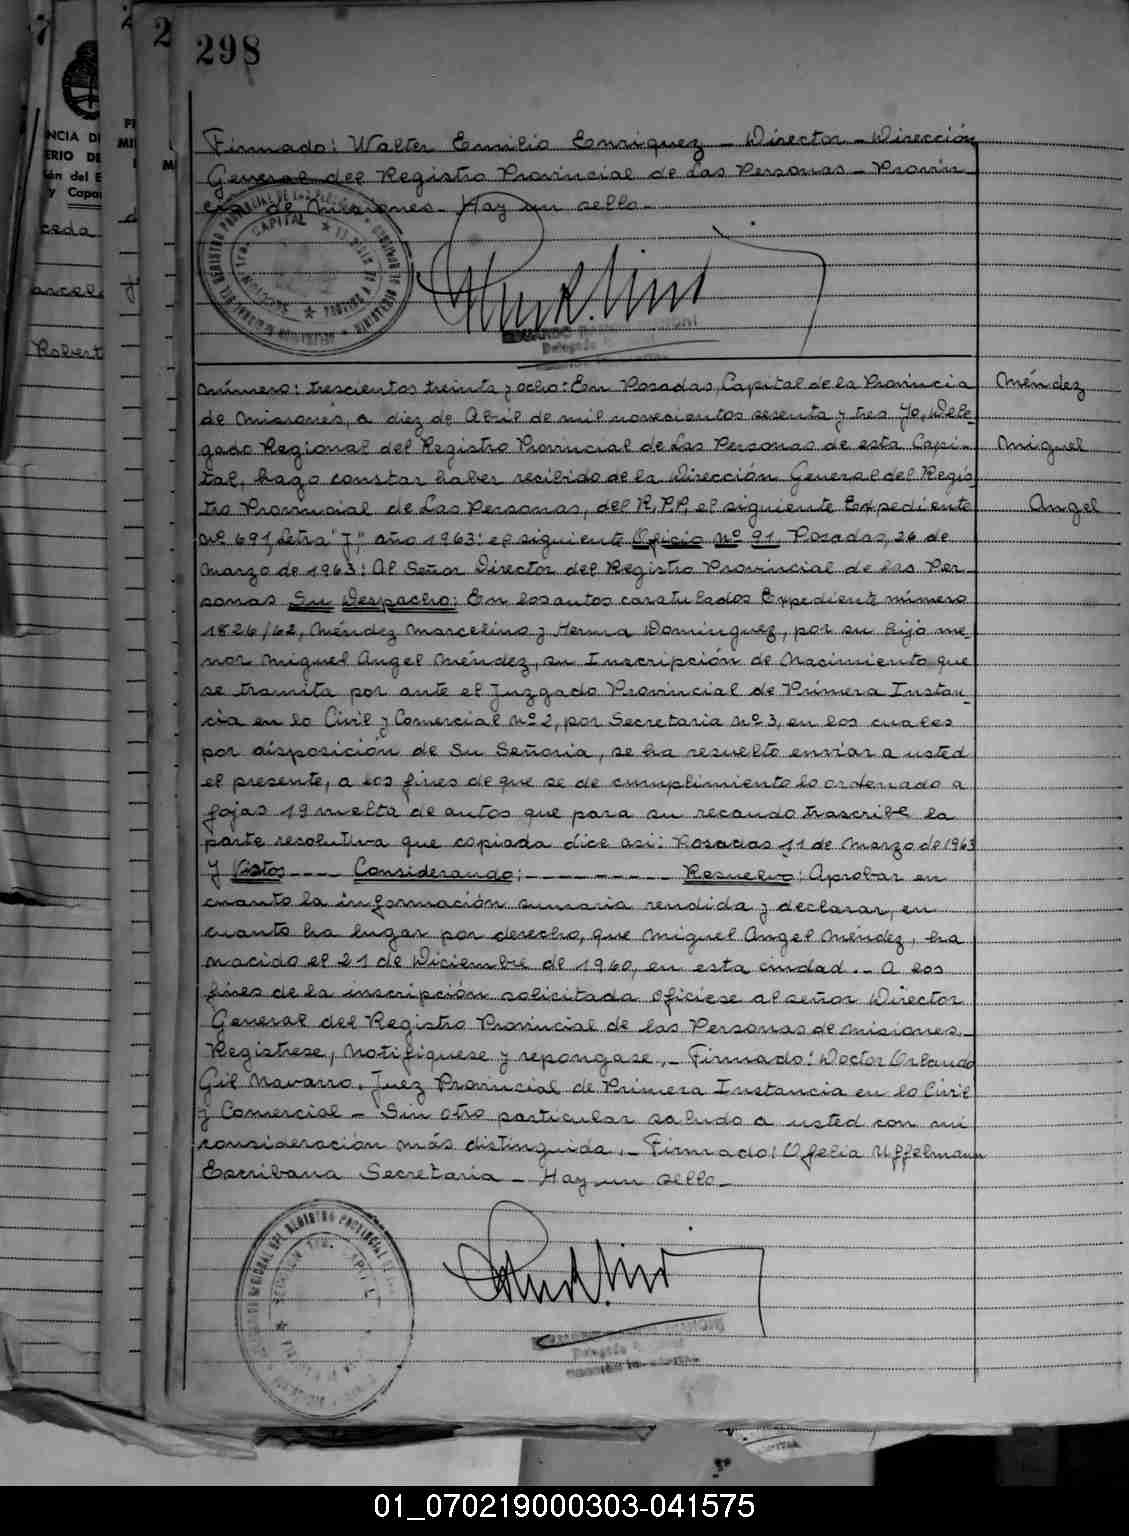 298
Firmado: Walter Emilio Enriquez — Director — Dirección
General del Registro Provincial de las Personas — Provin
cia de Misiones — Hay un sello —
Número: trescientos treinta y ocho: En Posadas, Capital de la Provincia
de Misiones, a diez de Abril de mil novecientos sesenta y tres Yo, Dele-
gado Regional del Registro Provincial de Las Personas de esta Capi-
tal, hago constar haber recibido de la Dirección General del Regis
tro Provincial de Las Personas, del R.P.P, el siguiente Expediente
Nº 691, Letra "J," año 1963: el siguiente Oficio Nº 91. Posadas, 26 de
Marzo de 1963: Al Señor Director del Registro Provincial de las Per-
sonas Su Despacho: En los autos caratulados Expediente número
1826/62, Méndez Marcelino y Herma Dominguez, por su hijo me-
nor Miguel Angel Méndez, su Inscripción de Nacimiento que
se tramita por ante el Juzgado Provincial de Primera Instan-
cia en lo Civil y Comercial Nº 2, por Secretaria Nº 3, en los cuales
por disposición de Su Señoria, se ha resuelto enviar a usted
el presente, a los fines de que se de cumplimiento lo ordenado a
fojas 19 vuelta de autos que para su recaudo trascribe la
parte resolutiva que copiada dice asi: Posadas 11 de Marzo de 1963
Y Vistos ---- Considerando: --------- Resuelvo: Aprobar en
cuanto la información sumaria rendida y declarar, en
cuanto ha lugar por derecho, que Miguel Angel Méndez, ha
nacido el 21 de Diciembre de 1960, en esta ciudad. — A los
fines de la inscripción solicitada oficiese al señor Director
General del Registro Provincial de las Personas de Misiones —
Registrese, Notifiquese y repongase. — Firmado: Doctor Orlando
Gil Navarro. Juez Provincial de Primera Instancia en lo Civil
y Comercial — Sin otro particular saludo a usted con mi
consideración más distinguida. — Firmado: Ofelia Uffelmann
Escribana Secretaria — Hay un sello —
Méndez
Miguel
Angel
01_070219000303-041575